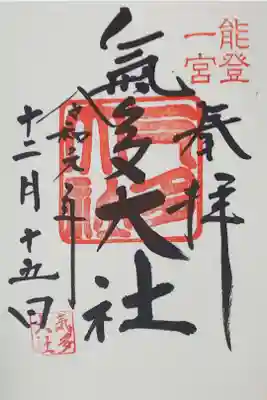 能登
一宮
奉拝
氣多大社
令和元年
十二月十五日
氣多
大社